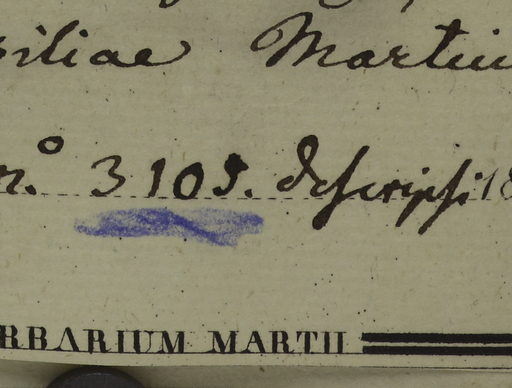 siliae Martiu
n.º 3105. descripsi 18
RBARIUM MARTII